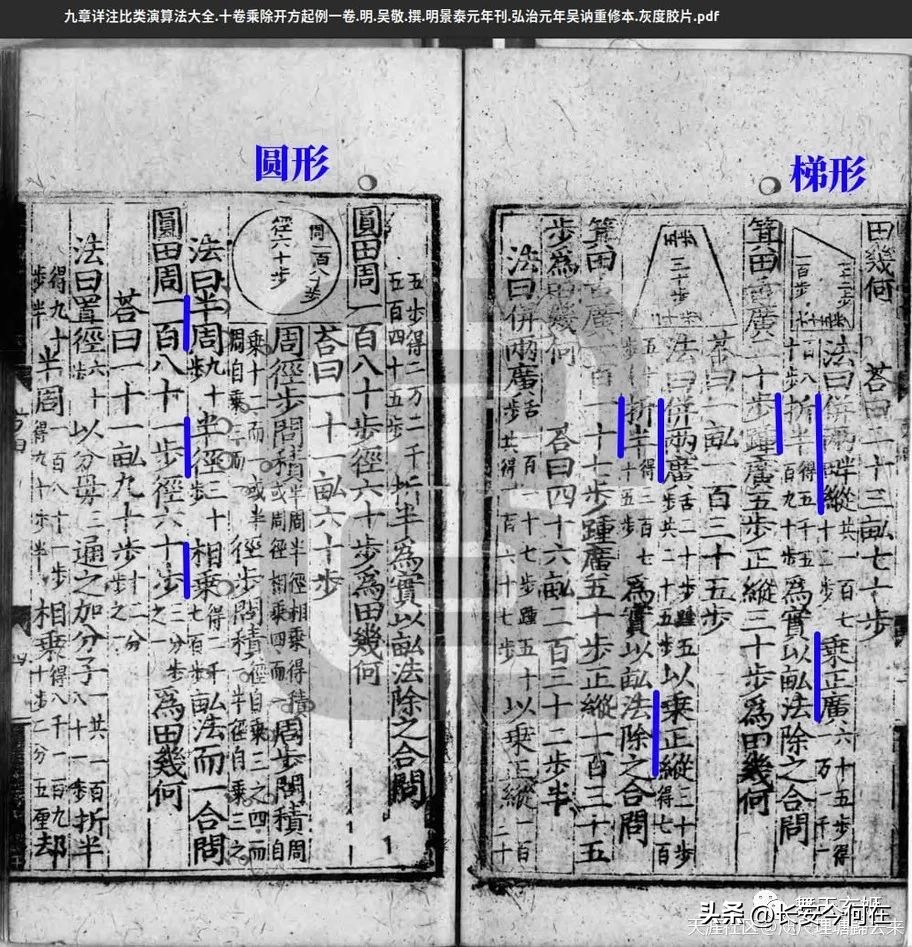 九章详注比类演算法大全.十卷乘除开方起例一卷.明.吴敬.撰.明景泰元年刊.弘治元年吴讷重修本.灰度胶片.pdf
梯形
田幾何 荅曰二十三畝七十步
法曰併兩畔縱 乘正廣六十五步得一万一千一
折半 為實以畝法除之合問
箕田廣二十步踵廣五步正縱三十步為田幾何
荅曰一畝一百三十五步
法曰併兩廣舌二十步踵五步共二十五步以乘正縱三十步得七百
五十步折半得三百七十五步為實以畝法除之合問
箕田廣一百一十七步踵廣五十步正縱一百三十五
步為田幾何 荅曰四十六畝二百三十二步半
法曰併兩廣舌一百一十七步踵五十步共得一百六十七步以乘正縱一百
圆形
五步得二万二千五百四十五步折半為實以畝法除之合問
圓田周一百八十步徑六十步為田幾何
荅曰一十一畝六十步
周一百八十步
徑六十步
周徑步問積半周半徑相乘得積或周徑相乘四而一周步問積周自
乘十二而一或半周自乘三而一徑步問積徑自乘三之四而一半徑自乘三之
法曰半周步九十半徑步三十相乘得二千七百步畝法而一合問
圓田周一百八十一步徑六十步三分步之一為田幾何
荅曰一十一畝九十步十二分步之一
法曰置徑六十步以分母三通之加分子一共一百八十一步折半
得九十步半半周一百八十一步得九十步半相乘得八千一百九十步二分五厘却
头条 @长安今何在